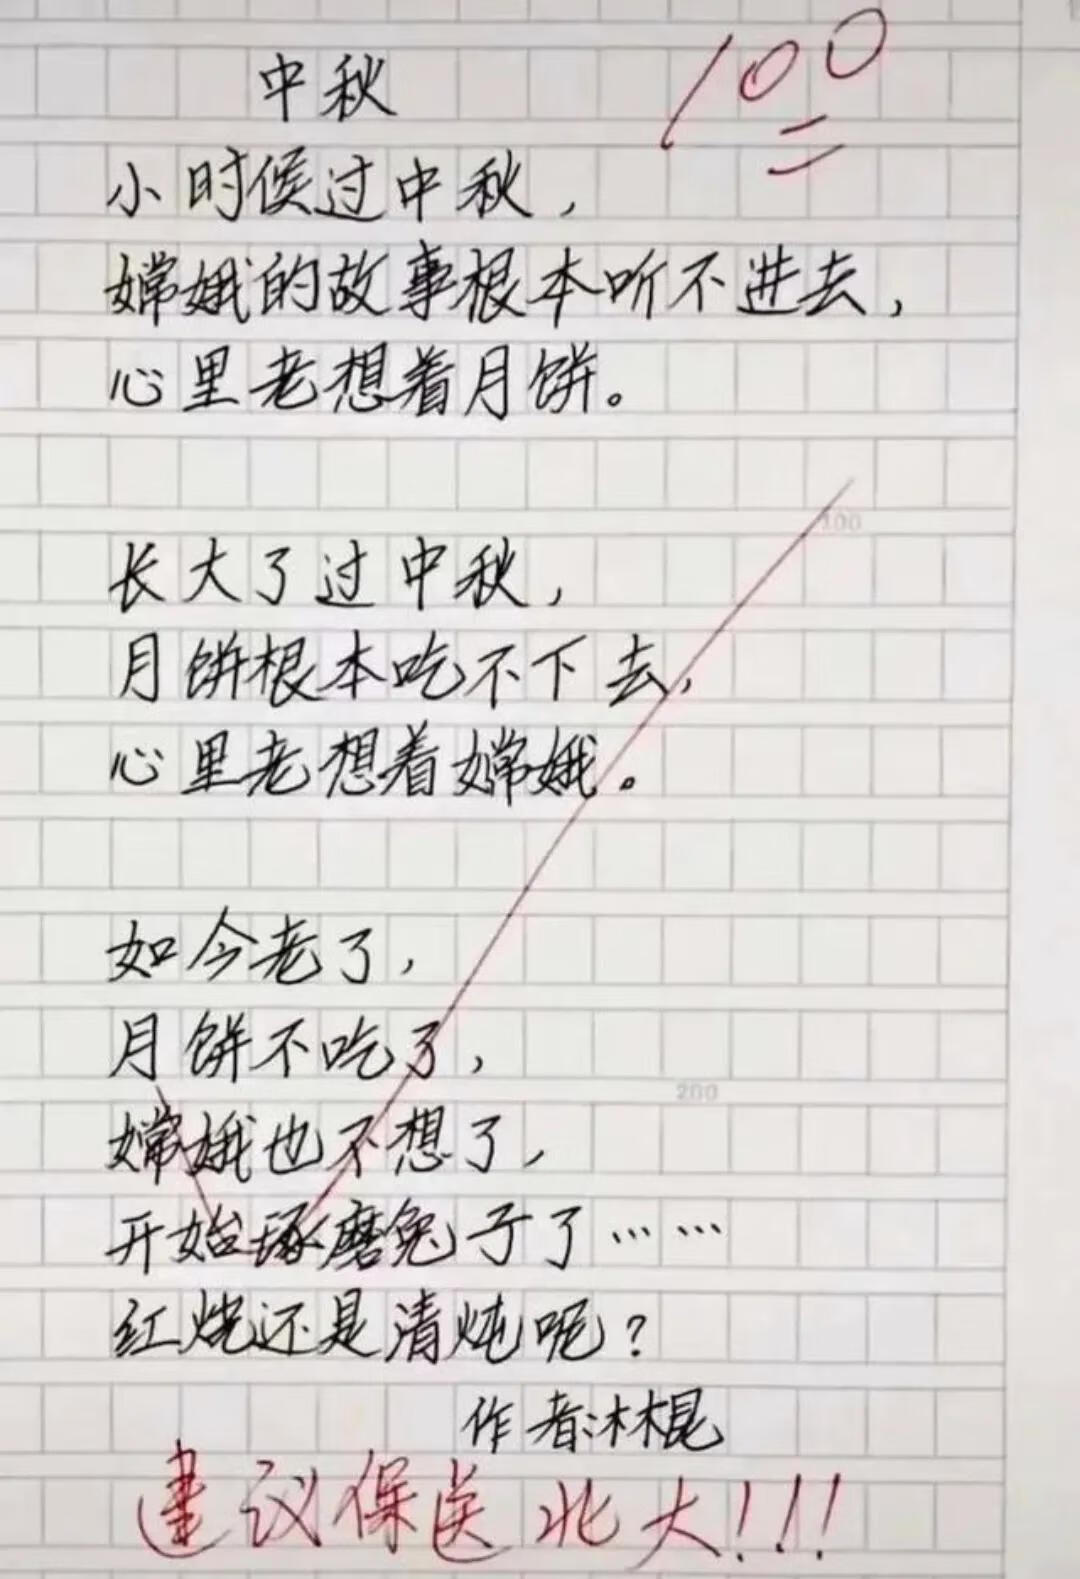 100
中秋
小时候过中秋，
嫦娥的故事根本听不进去，
心里老想着月饼。
100
长大了过中秋，
月饼根本吃不下去，
心里老想着嫦娥。
如今老了，
月饼不吃了，
200
嫦娥也不想了，
开始琢磨兔子了……
红烧还是清炖呢？
作者:林棍
建议保送北大!!!